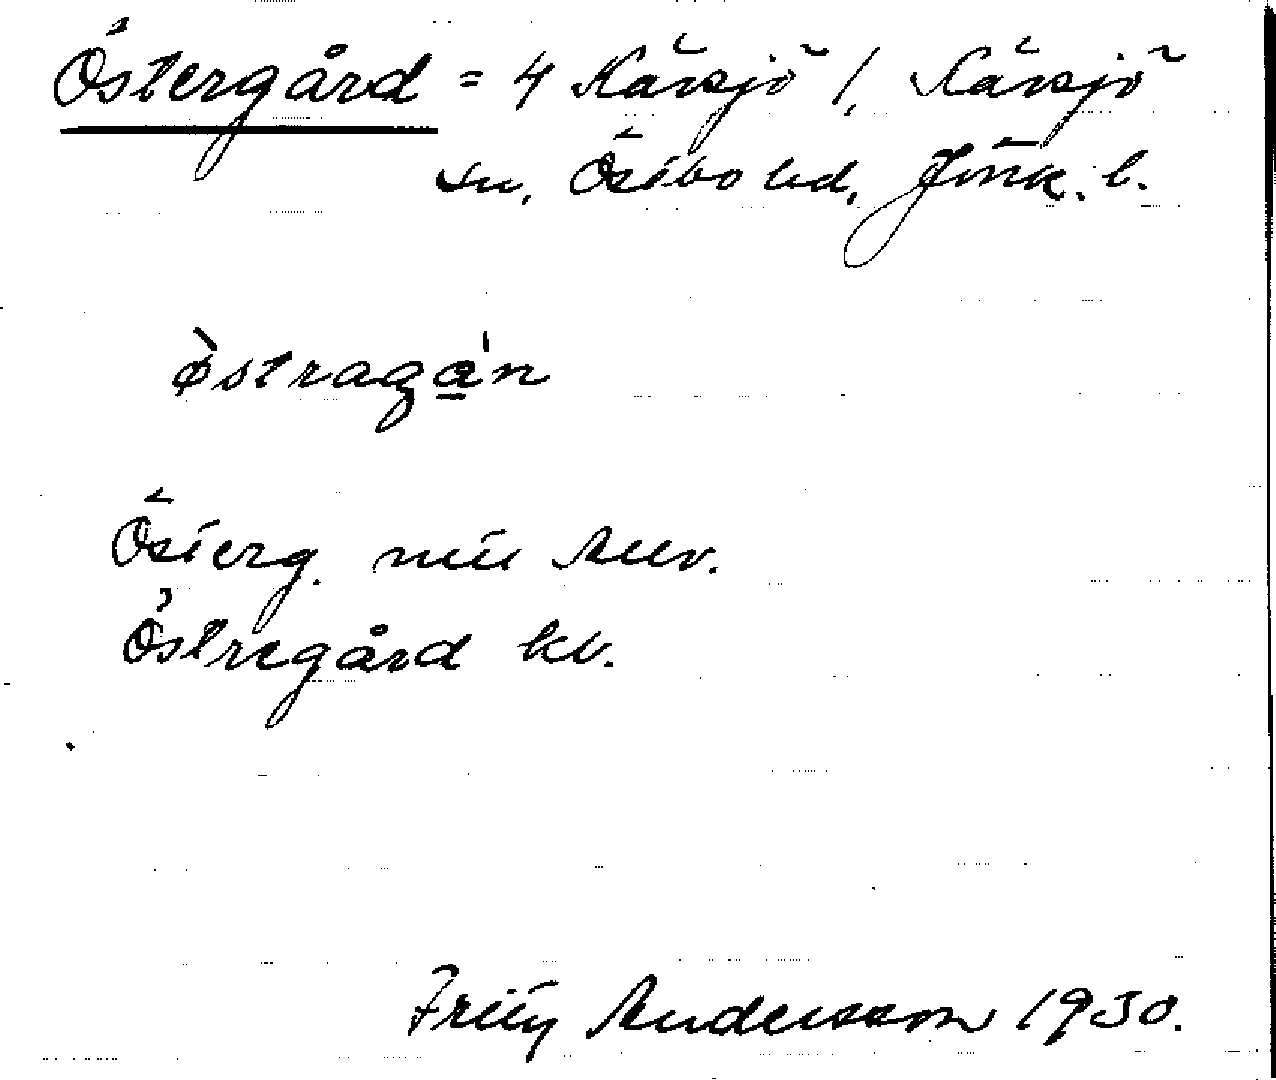 Östergård = 4 Kävsjö /, Kävsjö
sn, Östbo hd, Jönk. l.
östragan
Österg. mtl
Östregård kb.
Andersson 1930.